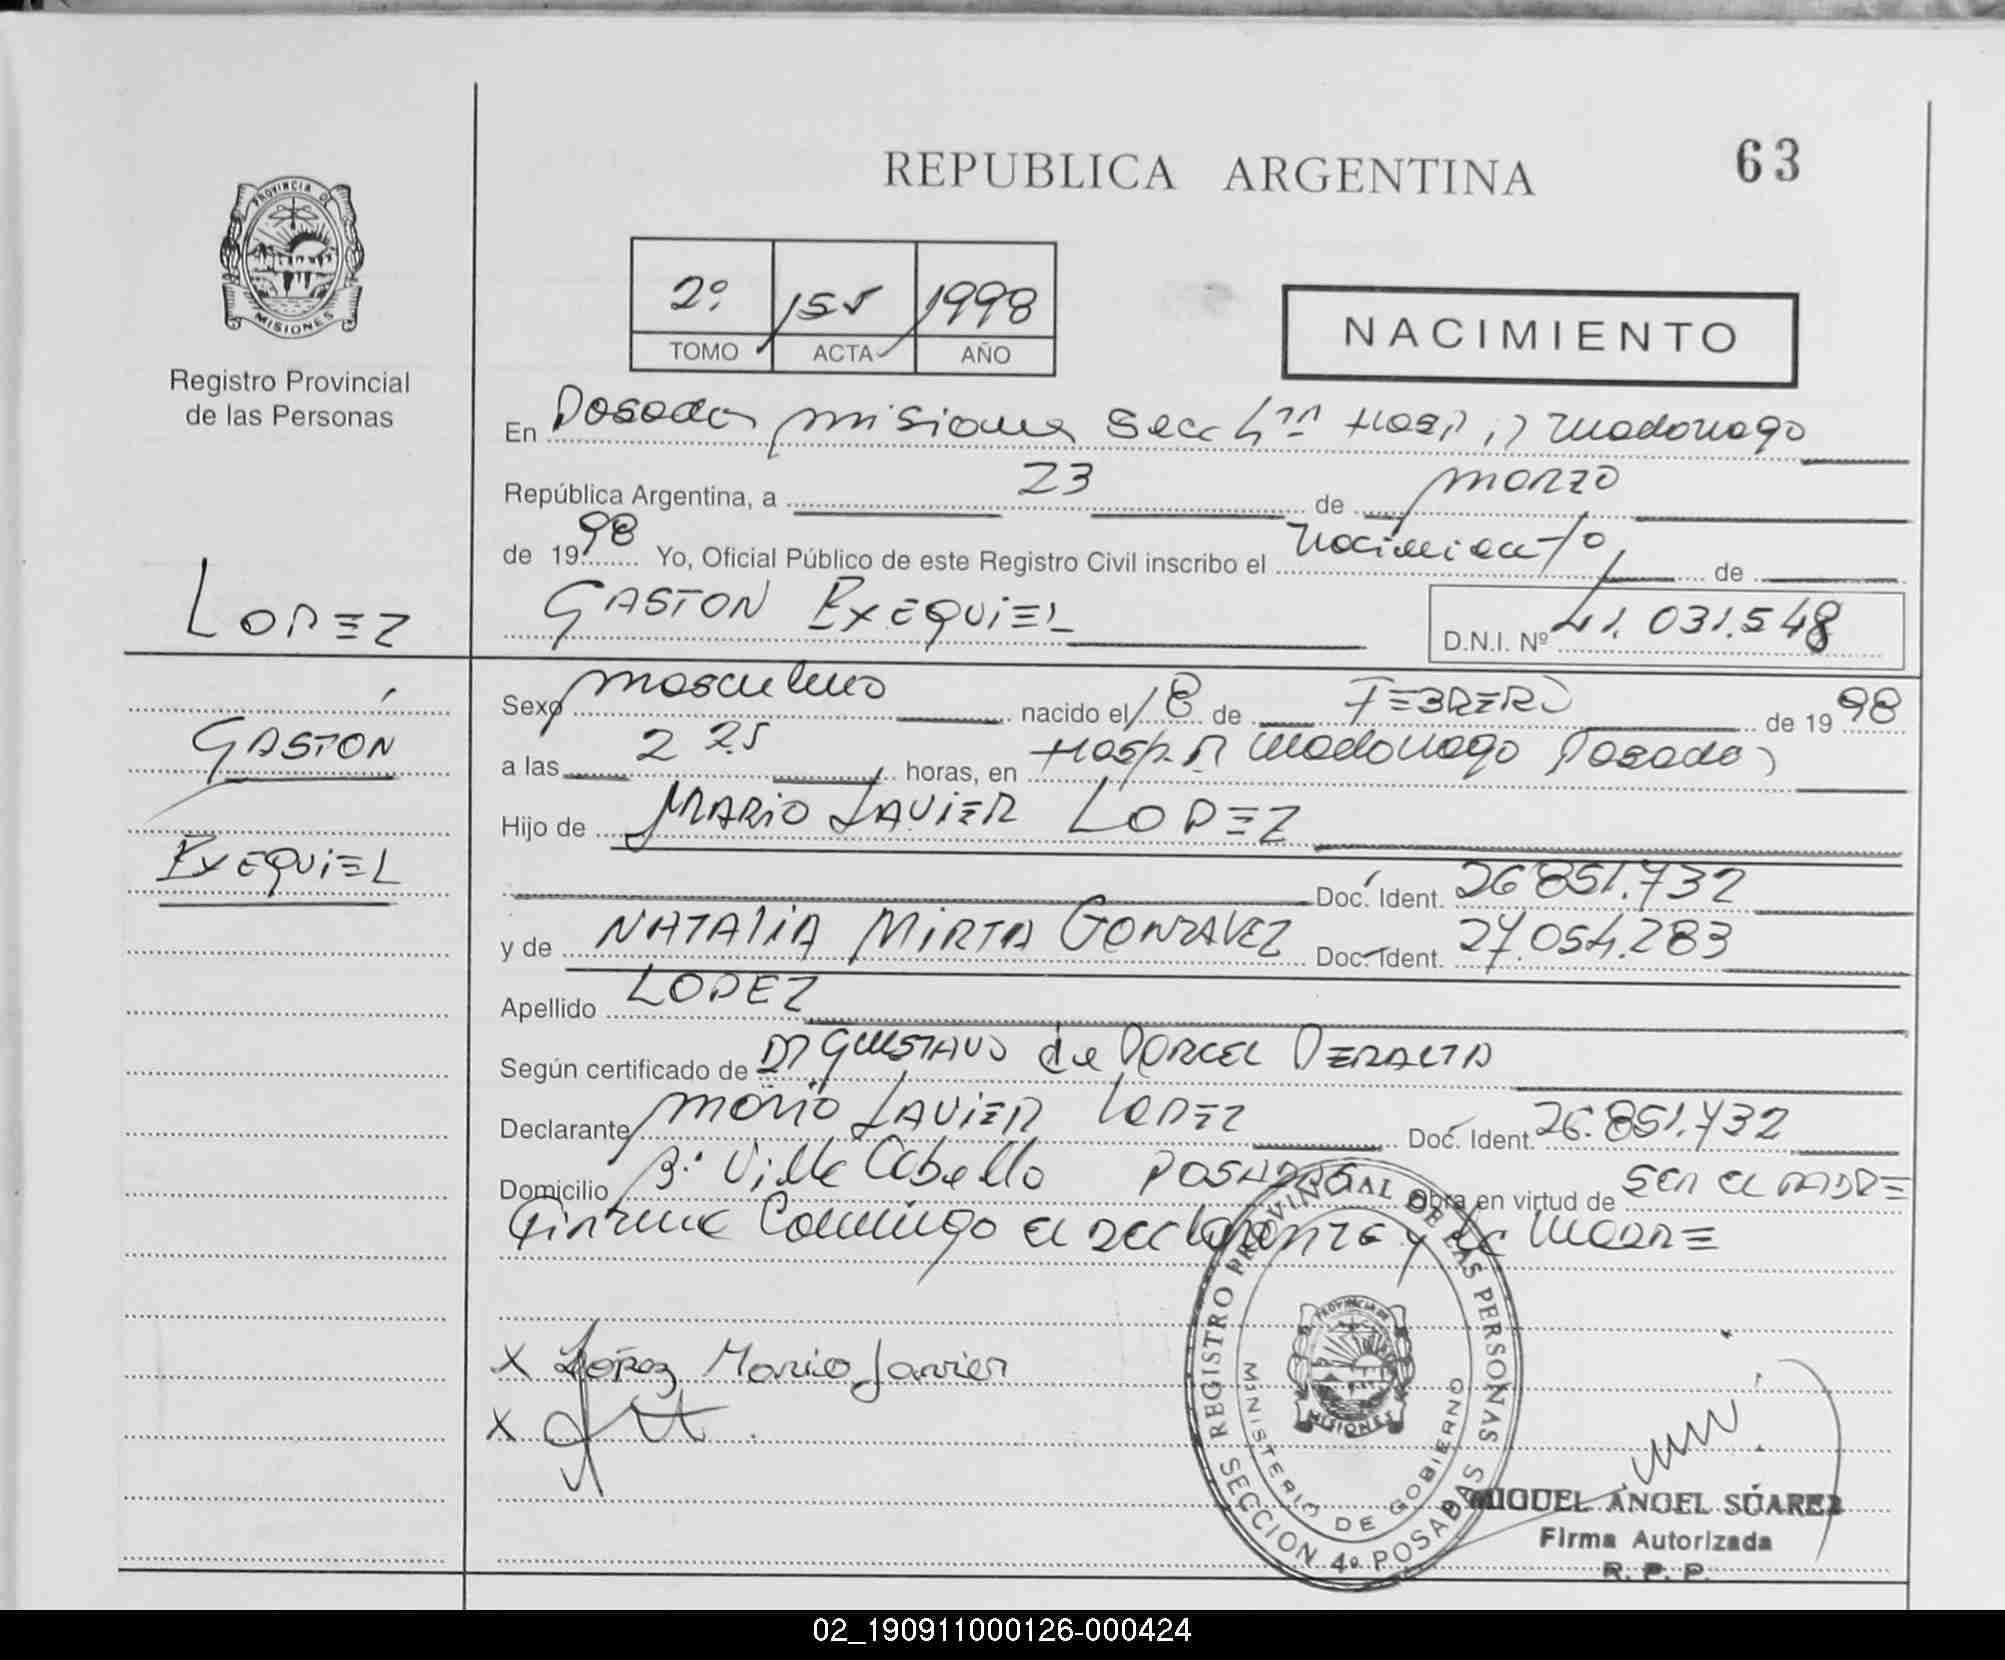 REPUBLICA ARGENTINA
63
PROVINCIA DE
MISIONES
Registro Provincial
de las Personas
2º 155 1998
TOMO ACTA AÑO
NACIMIENTO
En Posadas misiones Secc 4ta Hosp. R Madariaga
República Argentina, a 23 de marzo
de 1998 Yo, Oficial Público de este Registro Civil inscribo el nacimiento de
GASTON EXEQUIEL
D.N.I. Nº 41.031.548
LOPEZ
GASTON
EXEQUIEL
Sexo masculino nacido el 18 de FEBRERO de 1998
a las 2 25 horas, en Hosp. R Madariaga Posadas
Hijo de MARIO JAVIER LOPEZ
Doc. Ident. 26851.732
y de NATALIA MIRTA GONZALEZ Doc. Ident. 27.054.283
Apellido LOPEZ
Según certificado de DR GUSTAVO de PORCEL PERALTA
Declarante Mario JAVIER LOPEZ Doc. Ident. 26.851.732
Domicilio Bº Villa Cabello POSADAS Obra en virtud de SER EL PADRE
Firma Conmigo el declarante y la MADRE
X López Mario Javier
X
REGISTRO PROVINCIAL DE LAS PERSONAS
SECCION 4º POSADAS
MINISTERIO DE GOBIERNO
PROVINCIA DE
MISIONES
MIGUEL ANGEL SUAREZ
Firma Autorizada
R. P. P.
02_190911000126-000424